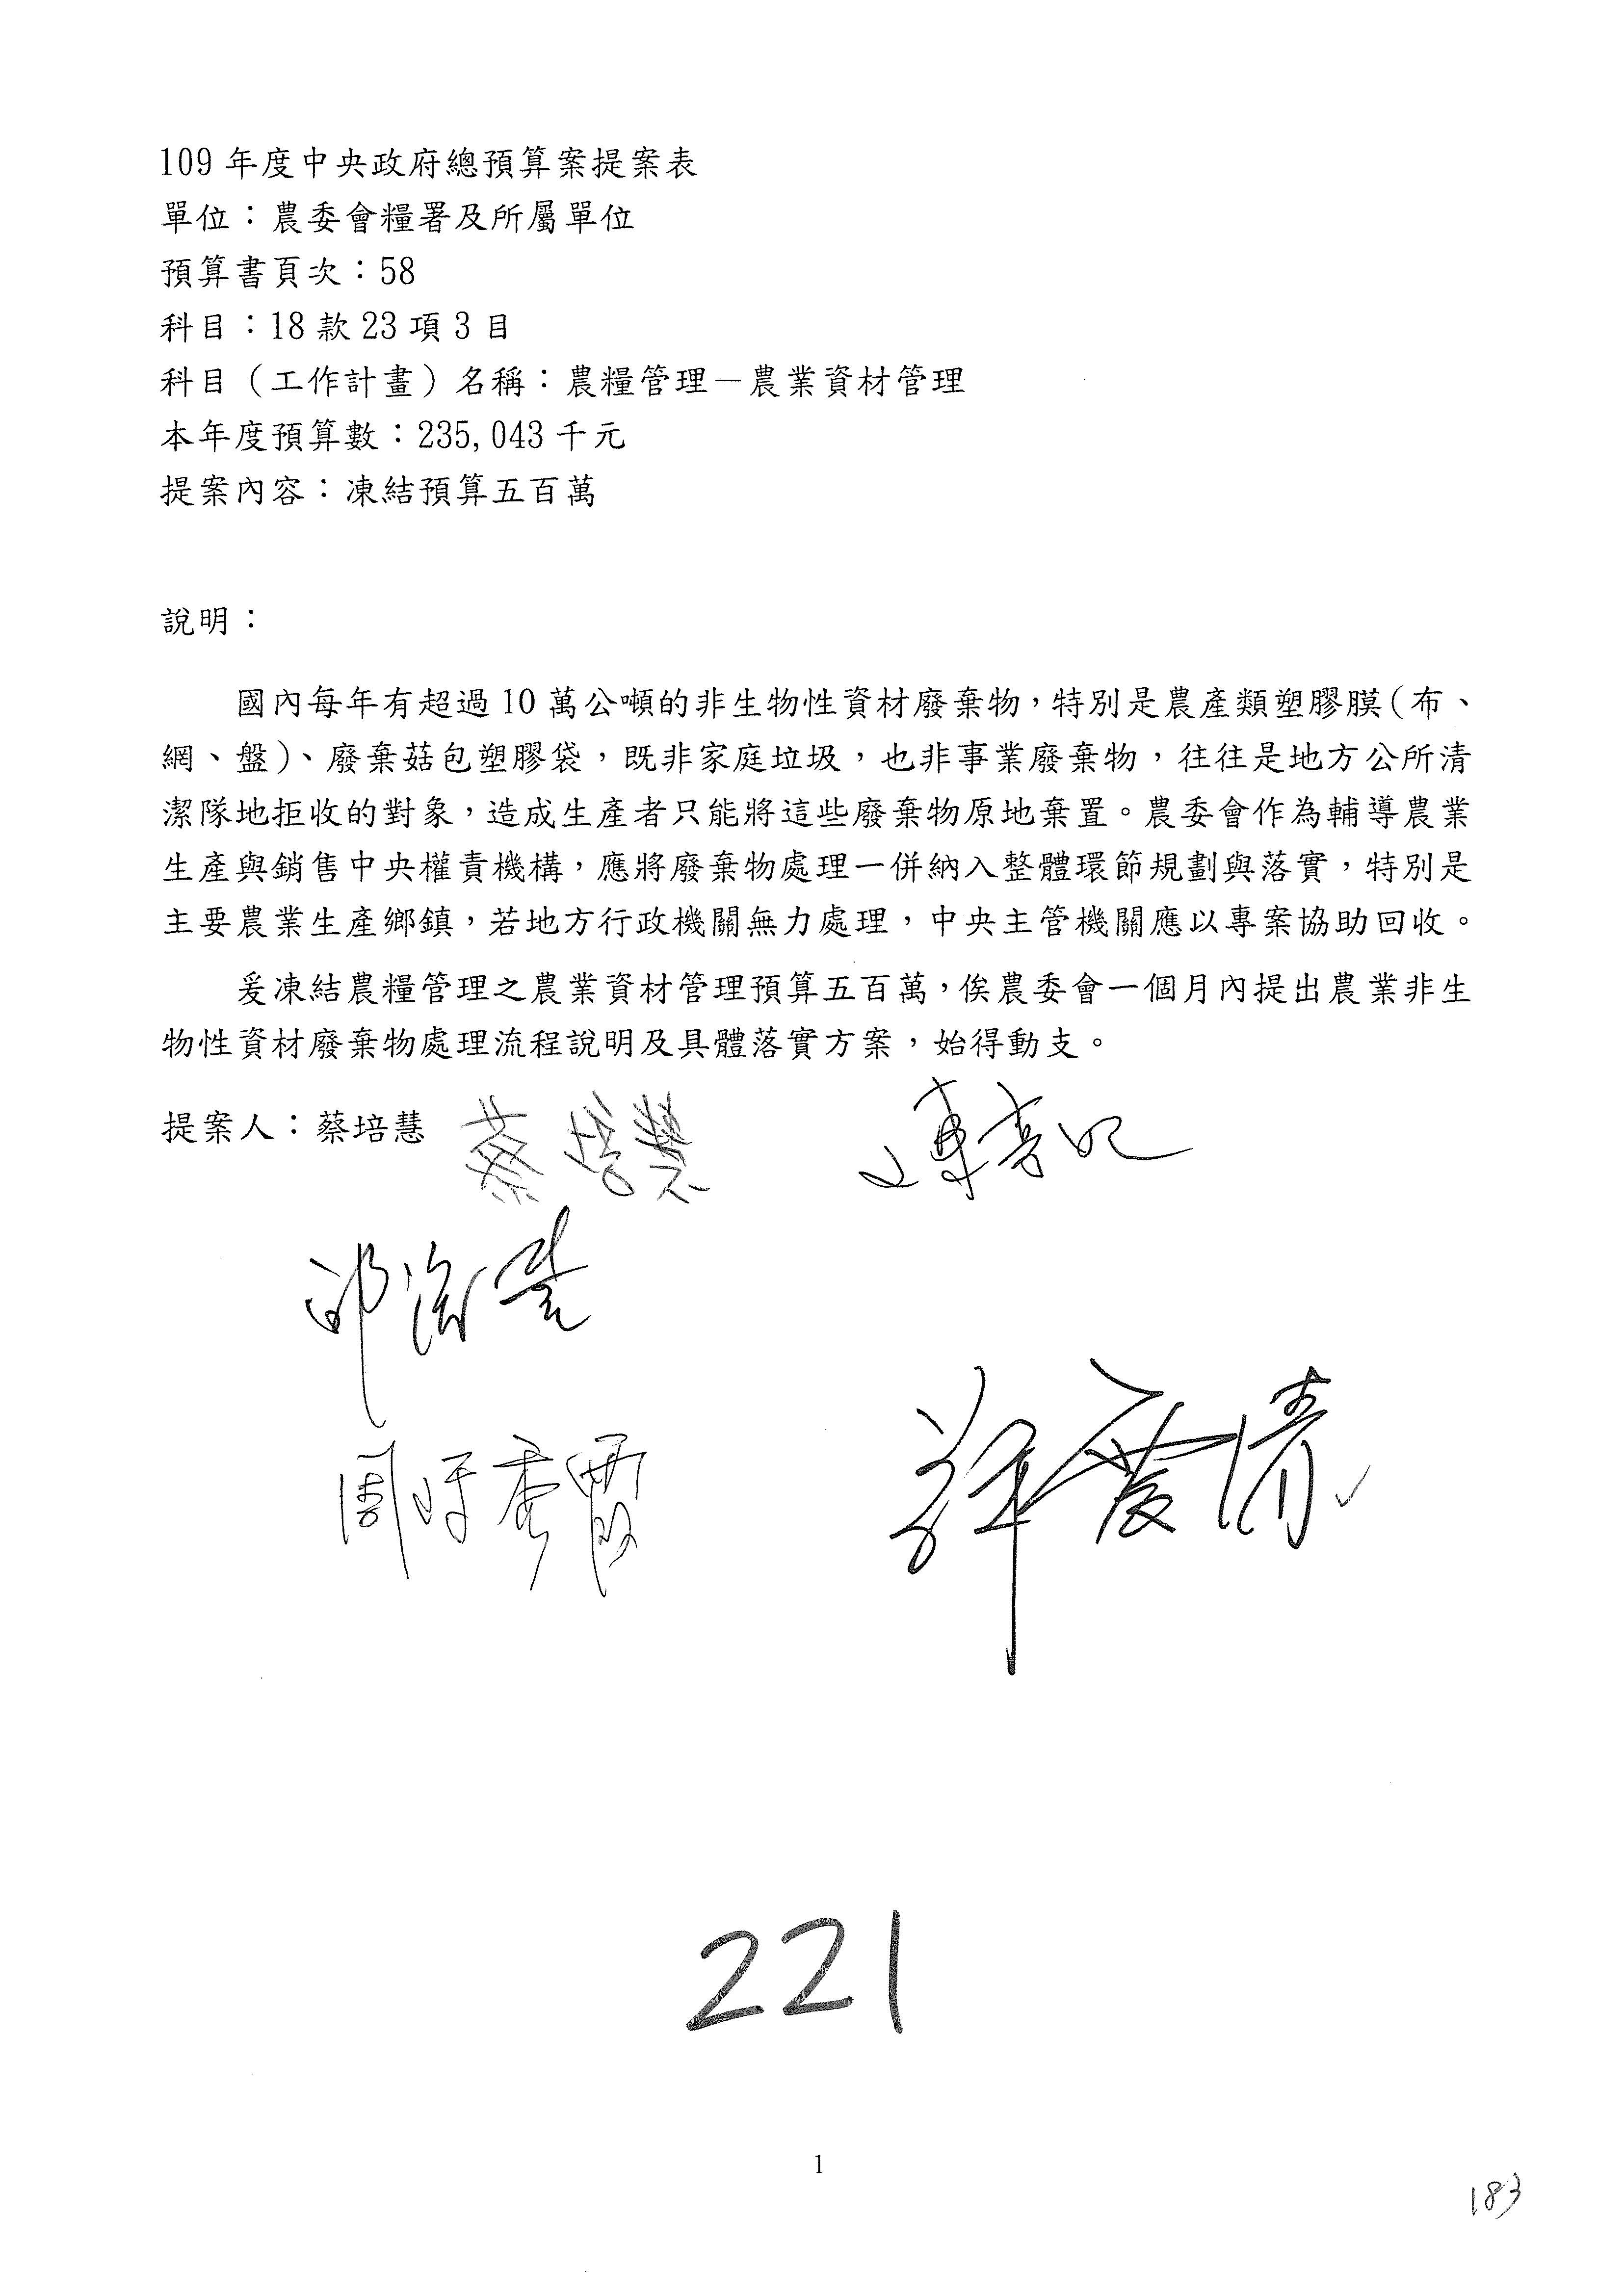 109 年度中央政府總預算案提案表
單位：農委會糧署及所屬單位
預算書頁次：58
科目：18 款 23 項 3 目
科目（工作計畫）名稱：農糧管理－農業資材管理
本年度預算數：235,043 千元
提案內容：凍結預算五百萬
說明：
國內每年有超過 10 萬公噸的非生物性資材廢棄物，特別是農產類塑膠膜（布、
網、盤）、廢棄菇包塑膠袋，既非家庭垃圾，也非事業廢棄物，往往是地方公所清
潔隊地拒收的對象，造成生產者只能將這些廢棄物原地棄置。農委會作為輔導農業
生產與銷售中央權責機構，應將廢棄物處理一併納入整體環節規劃與落實，特別是
主要農業生產鄉鎮，若地方行政機關無力處理，中央主管機關應以專案協助回收。
爰凍結農糧管理之農業資材管理預算五百萬，俟農委會一個月內提出農業非生
物性資材廢棄物處理流程說明及具體落實方案，始得動支。
提案人：蔡培慧 蔡培慧
周
221
1
183